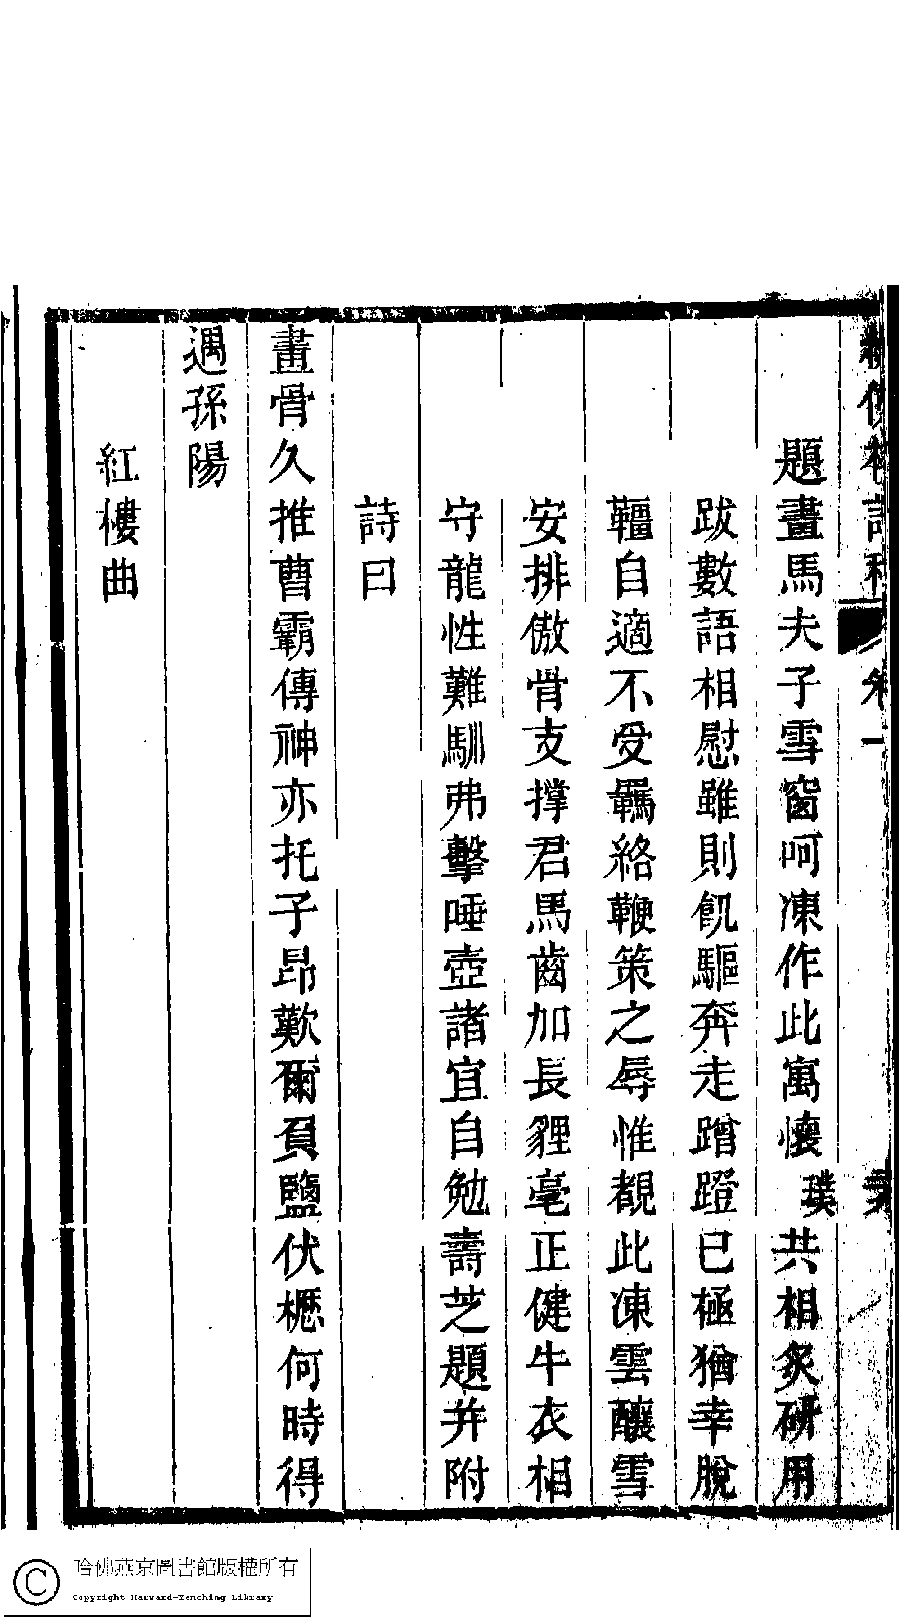 題畫馬夫子雪窗呵凍作此寓懷璞共相炙研用
跋數語相慰雖則飢驅奔走蹭蹬已極猶幸脫
韁自適不受羈絡鞭策之辱惟覩此凍雲釀雪
安排傲骨支撐君馬齒加長貍毫正健牛衣相
守龍性難馴弗擊唾壺諸宜自勉壽芝題并附
詩曰
畫骨久推曹霸傳神亦托子昂歎爾負鹽伏櫪何時得
遇孫陽
紅樓曲
哈佛燕京圖書館版權所有
Copyright Harvard-Yenching Library